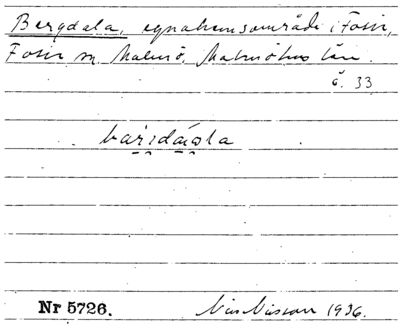 Bergdala, egnahemsområde i Fosie,
Fosie sn Malmö, Malmöhus län.
č. 33
bar̀sdáɷla
Nr 5726. Nils Nilsson 1936.